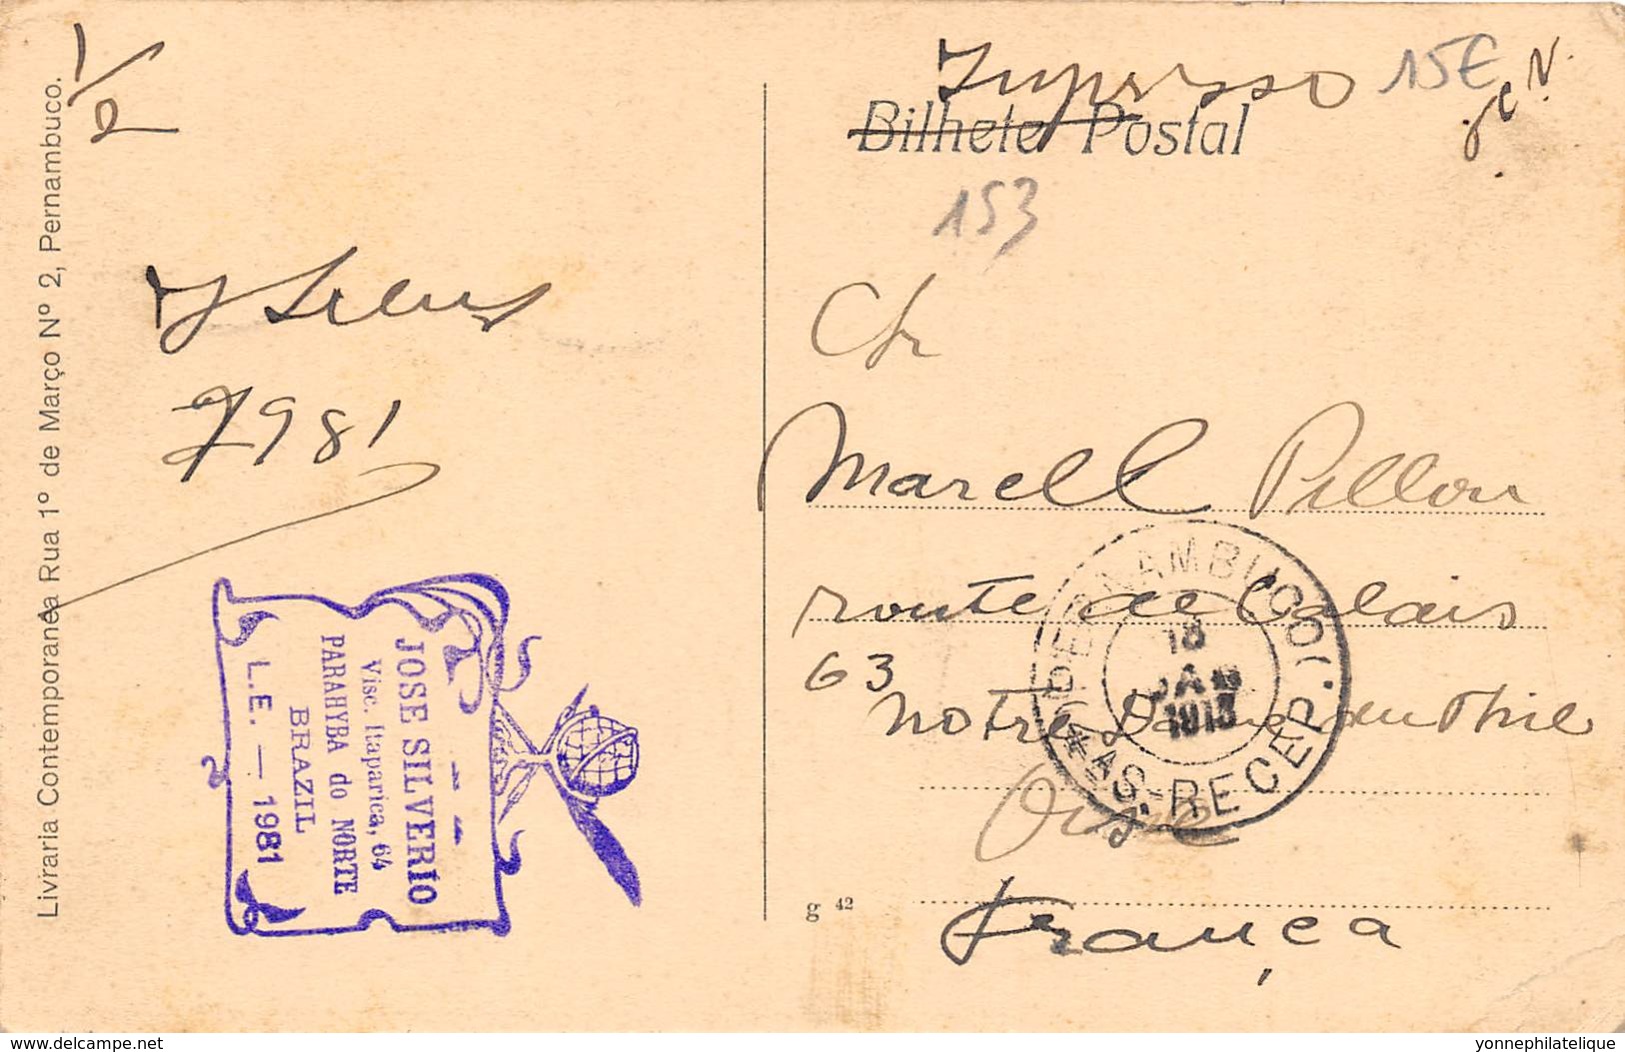 Livraria Contemporanéa Rua 1º de Março Nº 2, Pernambuco.
1/2
7981
JOSE SILVERIO
Visc. Itaparica, 64
PARAHYBA do NORTE
BRAZIL
L.E. — 1981
Impresso
15€
Bilhete Postal
153
Marcell Pillon
route de Calais
63
Notre Dame du Thil
Oise
França
g 42
PERNAMBUCO
18
JAN
1913
AS-RECEP.
delcampe.net
yonnephilatelique